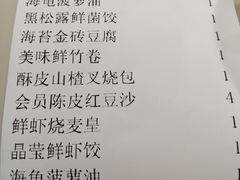 海龟菠萝油 1
黑松露鲜菌饺 1
海苔金砖豆腐 1
美味鲜竹卷 1
酥皮山楂叉烧包 1
会员陈皮红豆沙 4
鲜虾烧麦皇 1
晶莹鲜虾饺 1
海龟菠萝油 1